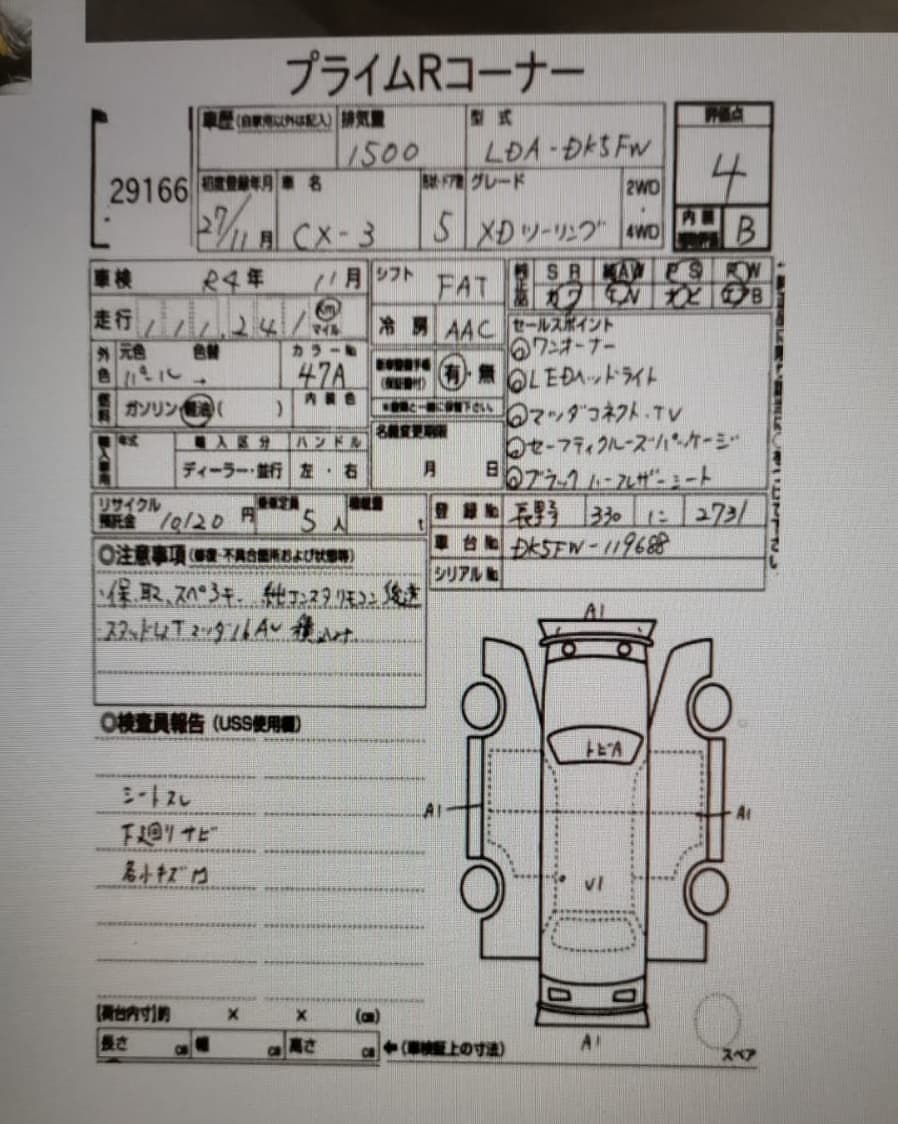 プライムRコーナー
29166
車歴(自家用以外は記入) 排気量 1500 型式 LDA-DK5FW
評価点 4
初度登録年月 27/11月 車名 CX-3 5 グレード XDツーリング 2WD・4WD
内装 B
車検 R4年 11月 シフト FAT
SR AW PS
走行 111,241 km マイル 冷房 AAC
外色 元色 パール 色替 → カラーNo 47A
有・無
燃料 ガソリン 軽油( ) 内装色
名義変更期限 月 日
セールスポイント
◎ワンオーナー
◎LEDヘッドライト
◎マツダコネクト・TV
◎セーフティクルーズパッケージ
◎ブラックハーフレザーシート
年式 輸入区分 ハンドル
ディーラー・並行 左・右
リサイクル預託金 10120円 乗車定員 5人 積載量 t
登録No 長野 330 に 2731
車台No DK5FW-119688
シリアルNo
◎注意事項(修復・不具合箇所および状態等)
・保、取、スペアキー、純エンスタリモコン後送
◎検査員報告(USS使用欄)
シートスレ
下廻りサビ
各小キズ凹
A1
トビA
A1
A1
U1
A1
スペア
【荷台内寸】約 × × (cm)
長さ cm 幅 cm 高さ cm ←(車検証上の寸法)